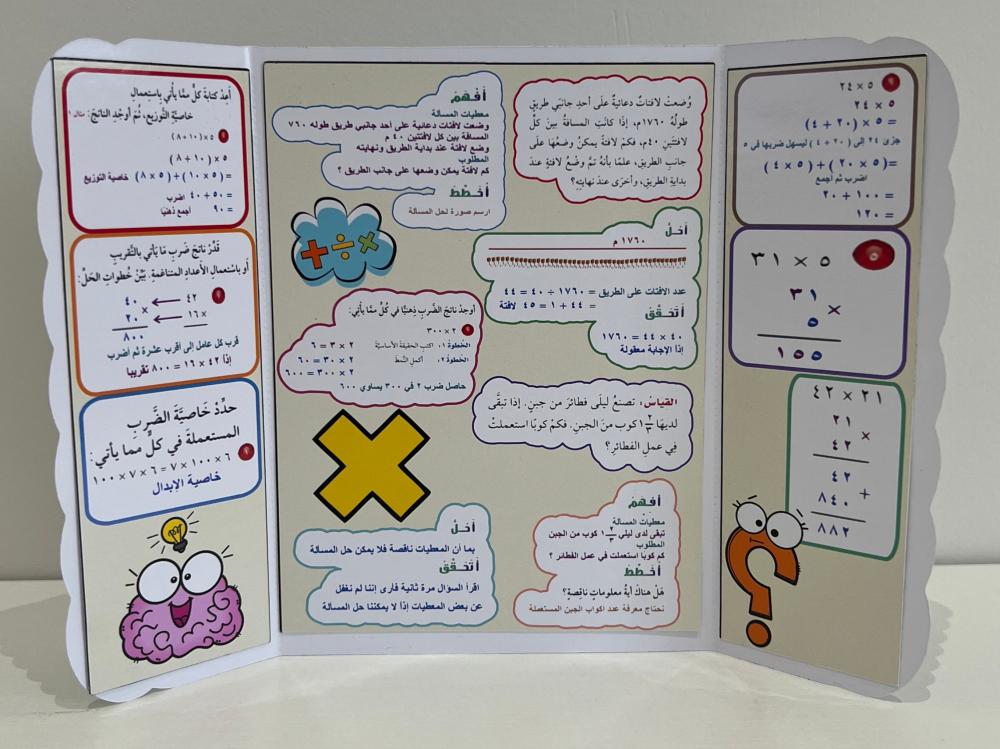 ٥ × ٢٤
٢٤ × ٥
= ٥ × (٢٠ + ٤)
جزئ ٢٤ إلى (٢٠ + ٤) ليسهل ضربها في ٥
= (٥ × ٢٠) + (٥ × ٤)
اضرب ثم أجمع
= ١٠٠ + ٢٠
= ١٢٠
٥ × ٣١
٣١
×
٥
١٥٥
٢١ × ٤٢
٢١
×
٤٢
٤٢
+
٨٤٠
٨٨٢
وُضعتْ لافتاتٌ دعائيةٌ علَى أحدِ جانبَي طريقٍ
طولُهُ ١٧٦٠م، إذَا كانَتِ المسافةُ بينَ كلِّ
لافتتينِ ٤٠م، فكمْ لافتةً يمكنُ وضعُهَا علَى
جانبِ الطريقِ، علمًا بأنهُ تمَّ وضعُ لافتةٍ عندَ
بدايةِ الطريقِ، وأخرَى عندَ نهايتِهِ؟
أفهم
معطيات المسألة
وضعت لافتات دعائية على أحد جانبي طريق طوله ٧٦٠
المسافة بين كل لافتتين ٤٠ م
وضع لافتة عند بداية الطريق ونهايته
المطلوب
كم لافتة يمكن وضعها على جانب الطريق ؟
أخطط
ارسم صورة لحل المسألة
أحل
١٧٦٠ م
عدد الافتات على الطريق = ١٧٦٠ ÷ ٤٠ = ٤٤
= ٤٤ + ١ = ٤٥ لافتة
أتحقق
٤٠ × ٤٤ = ١٧٦٠
إذا الإجابة معقولة
أوجدْ ناتجَ الضَّربِ ذهنيًّا في كُلٍّ ممَّا يأتِي:
٢ × ٣٠٠
الخطوة ١: اكتبِ الحقيقةَ الأساسيَّةَ
٢ × ٣ = ٦
الخطوة ٢: أكملِ النَّمطَ
٢ × ٣٠ = ٦٠
٢ × ٣٠٠ = ٦٠٠
حاصل ضرب ٢ في ٣٠٠ يساوي ٦٠٠
القياسُ: تصنعُ ليلَى فطائرَ من جبنٍ. إذا تبقَّى
لديهَا ١ ١/٣ كوب منَ الجبنِ. فكمْ كوبًا استعملتْ
في عملِ الفطائرِ؟
أفهم
معطيات المسألة
تبقى لدى ليلى ١ ١/٣ كوب من الجبن
المطلوب
كم كوبًا استعملت في عمل الفطائر ؟
أخطط
هَلْ هناكَ أيةُ معلوماتٍ ناقِصةٍ؟
نحتاج معرفة عدد اكواب الجبن المستعملة
أحل
بما أن المعطيات ناقصة فلا يمكن حل المسألة
أتحقق
اقرأ السؤال مرة ثانية فأرى إننا لم نغفل
عن بعض المعطيات إذًا لا يمكننا حل المسألة
أعِدْ كتابةَ كلٍّ ممَّا يأتِي باستعمالِ
خاصيَّةِ التَّوزيعِ، ثُمَّ أوجدِ الناتجَ: مثال ١
٥ × (١٠ + ٨)
٥ × (١٠ + ٨)
= (٥ × ١٠) + (٥ × ٨) خاصية التوزيع
= ٥٠ + ٤٠ اضرب
= ٩٠ أجمع ذهنيًا
قَدِّرْ ناتجَ ضَربِ مَا يَأتي بالتَّقريبِ
أو باستعمالِ الأعدادِ المتناغمةِ. بَيِّنْ خُطواتِ الحَلِّ:
٤٢ ← ٤٠
١٦ × ← ٢٠ ×
٨٠٠
قرب كل عامل إلى أقرب عشرة ثم أضرب
إذا ٤٢ × ١٦ = ٨٠٠ تقريبا
حدِّدْ خَاصيَّةَ الضَّربِ
المستعملةَ في كلٍّ ممَا يأتي:
٦ × ٧ × ١٠٠ = ٦ × ١٠٠ × ٧
خاصية الإبدال